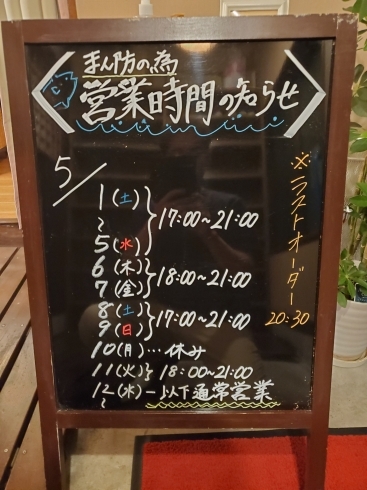 まん防の為
営業時間の知らせ
5/
1(土)
〜
5(水)
17:00〜21:00
6(木)
7(金)
18:00〜21:00
8(土)
9(日)
17:00〜21:00
10(月)…休み
11(火)} 18:00〜21:00
12(水)ー以下通常営業
〜
※ラストオーダー
20:30